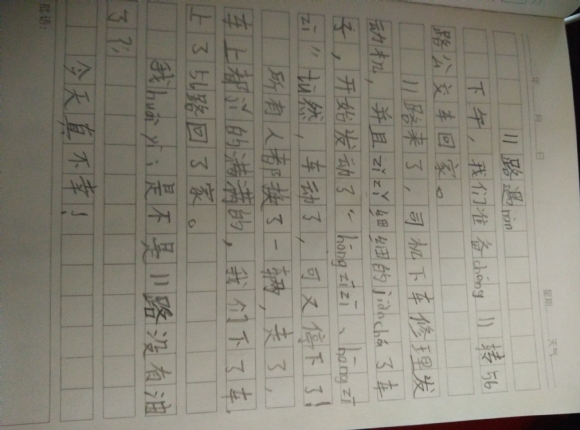 年 月 日 星期 天气
11路遇险
下午,我们准备chéng 11转56
路公交车回家。
11路来了,司机下车修理发
动机,并且zǐ zǐ细细的jiǎnchá了车
子,开始发动了“hōng zīzī、hōng zī
zī”忽然,车动了,可又停下了!
所有人都换了一辆,
车上都的满满的,我们下了车,
上了56路回了家。
我huái yí:是不是11路没有油
了?
今天真不幸!